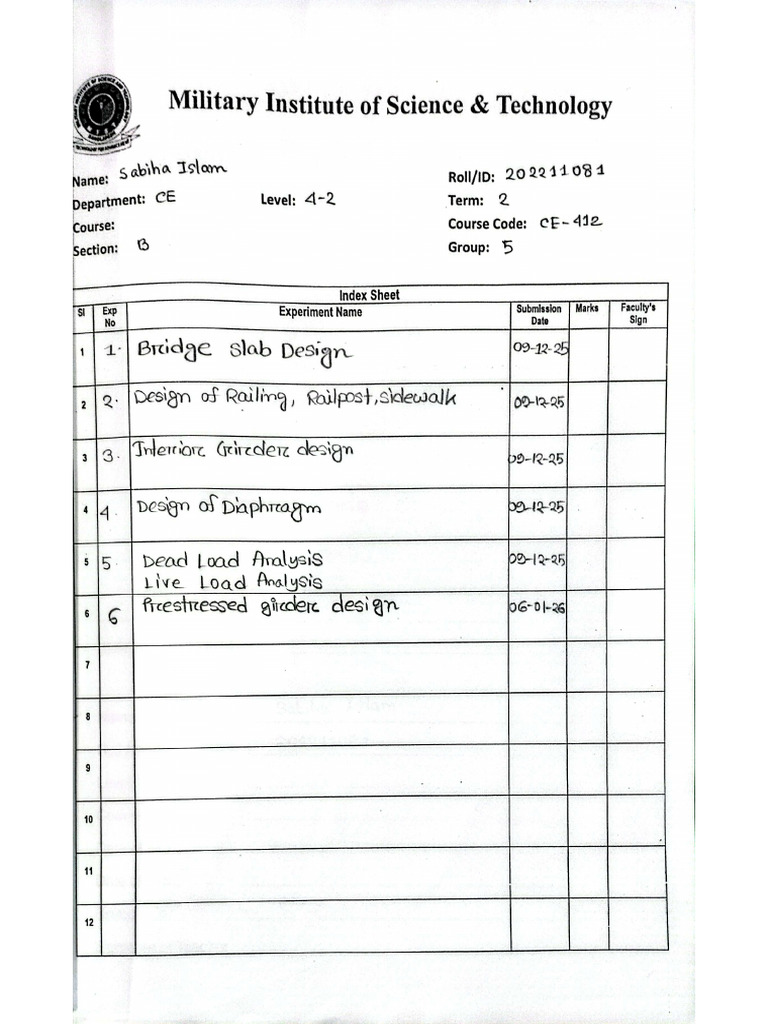 Military Institute of Science & Technology
Name: Sabiha Islam Roll/ID: 202211081
Department: CE Level: 4-2 Term: 2
Course: Course Code: CE-412
Section: B Group: 5
Index Sheet
Sl Exp No Experiment Name Submission Date Marks Faculty's Sign
1 1. Bridge Slab Design 09-12-25
2 2. Design of Railing, Railpost, sidewalk 09-12-25
3 3. Interior Girder design 09-12-25
4 4. Design of Diaphragm 09-12-25
5 5. Dead Load Analysis 09-12-25
Live Load Analysis
6 6 Prestressed girder design 06-01-26
7
8
9
10
11
12